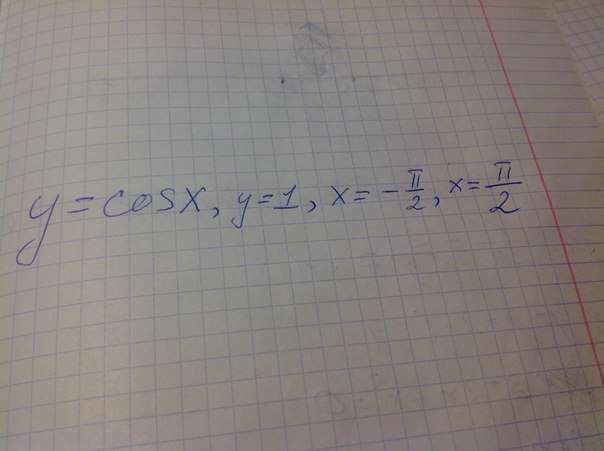 y = cos x, y = 1, x = -π/2, x = π/2